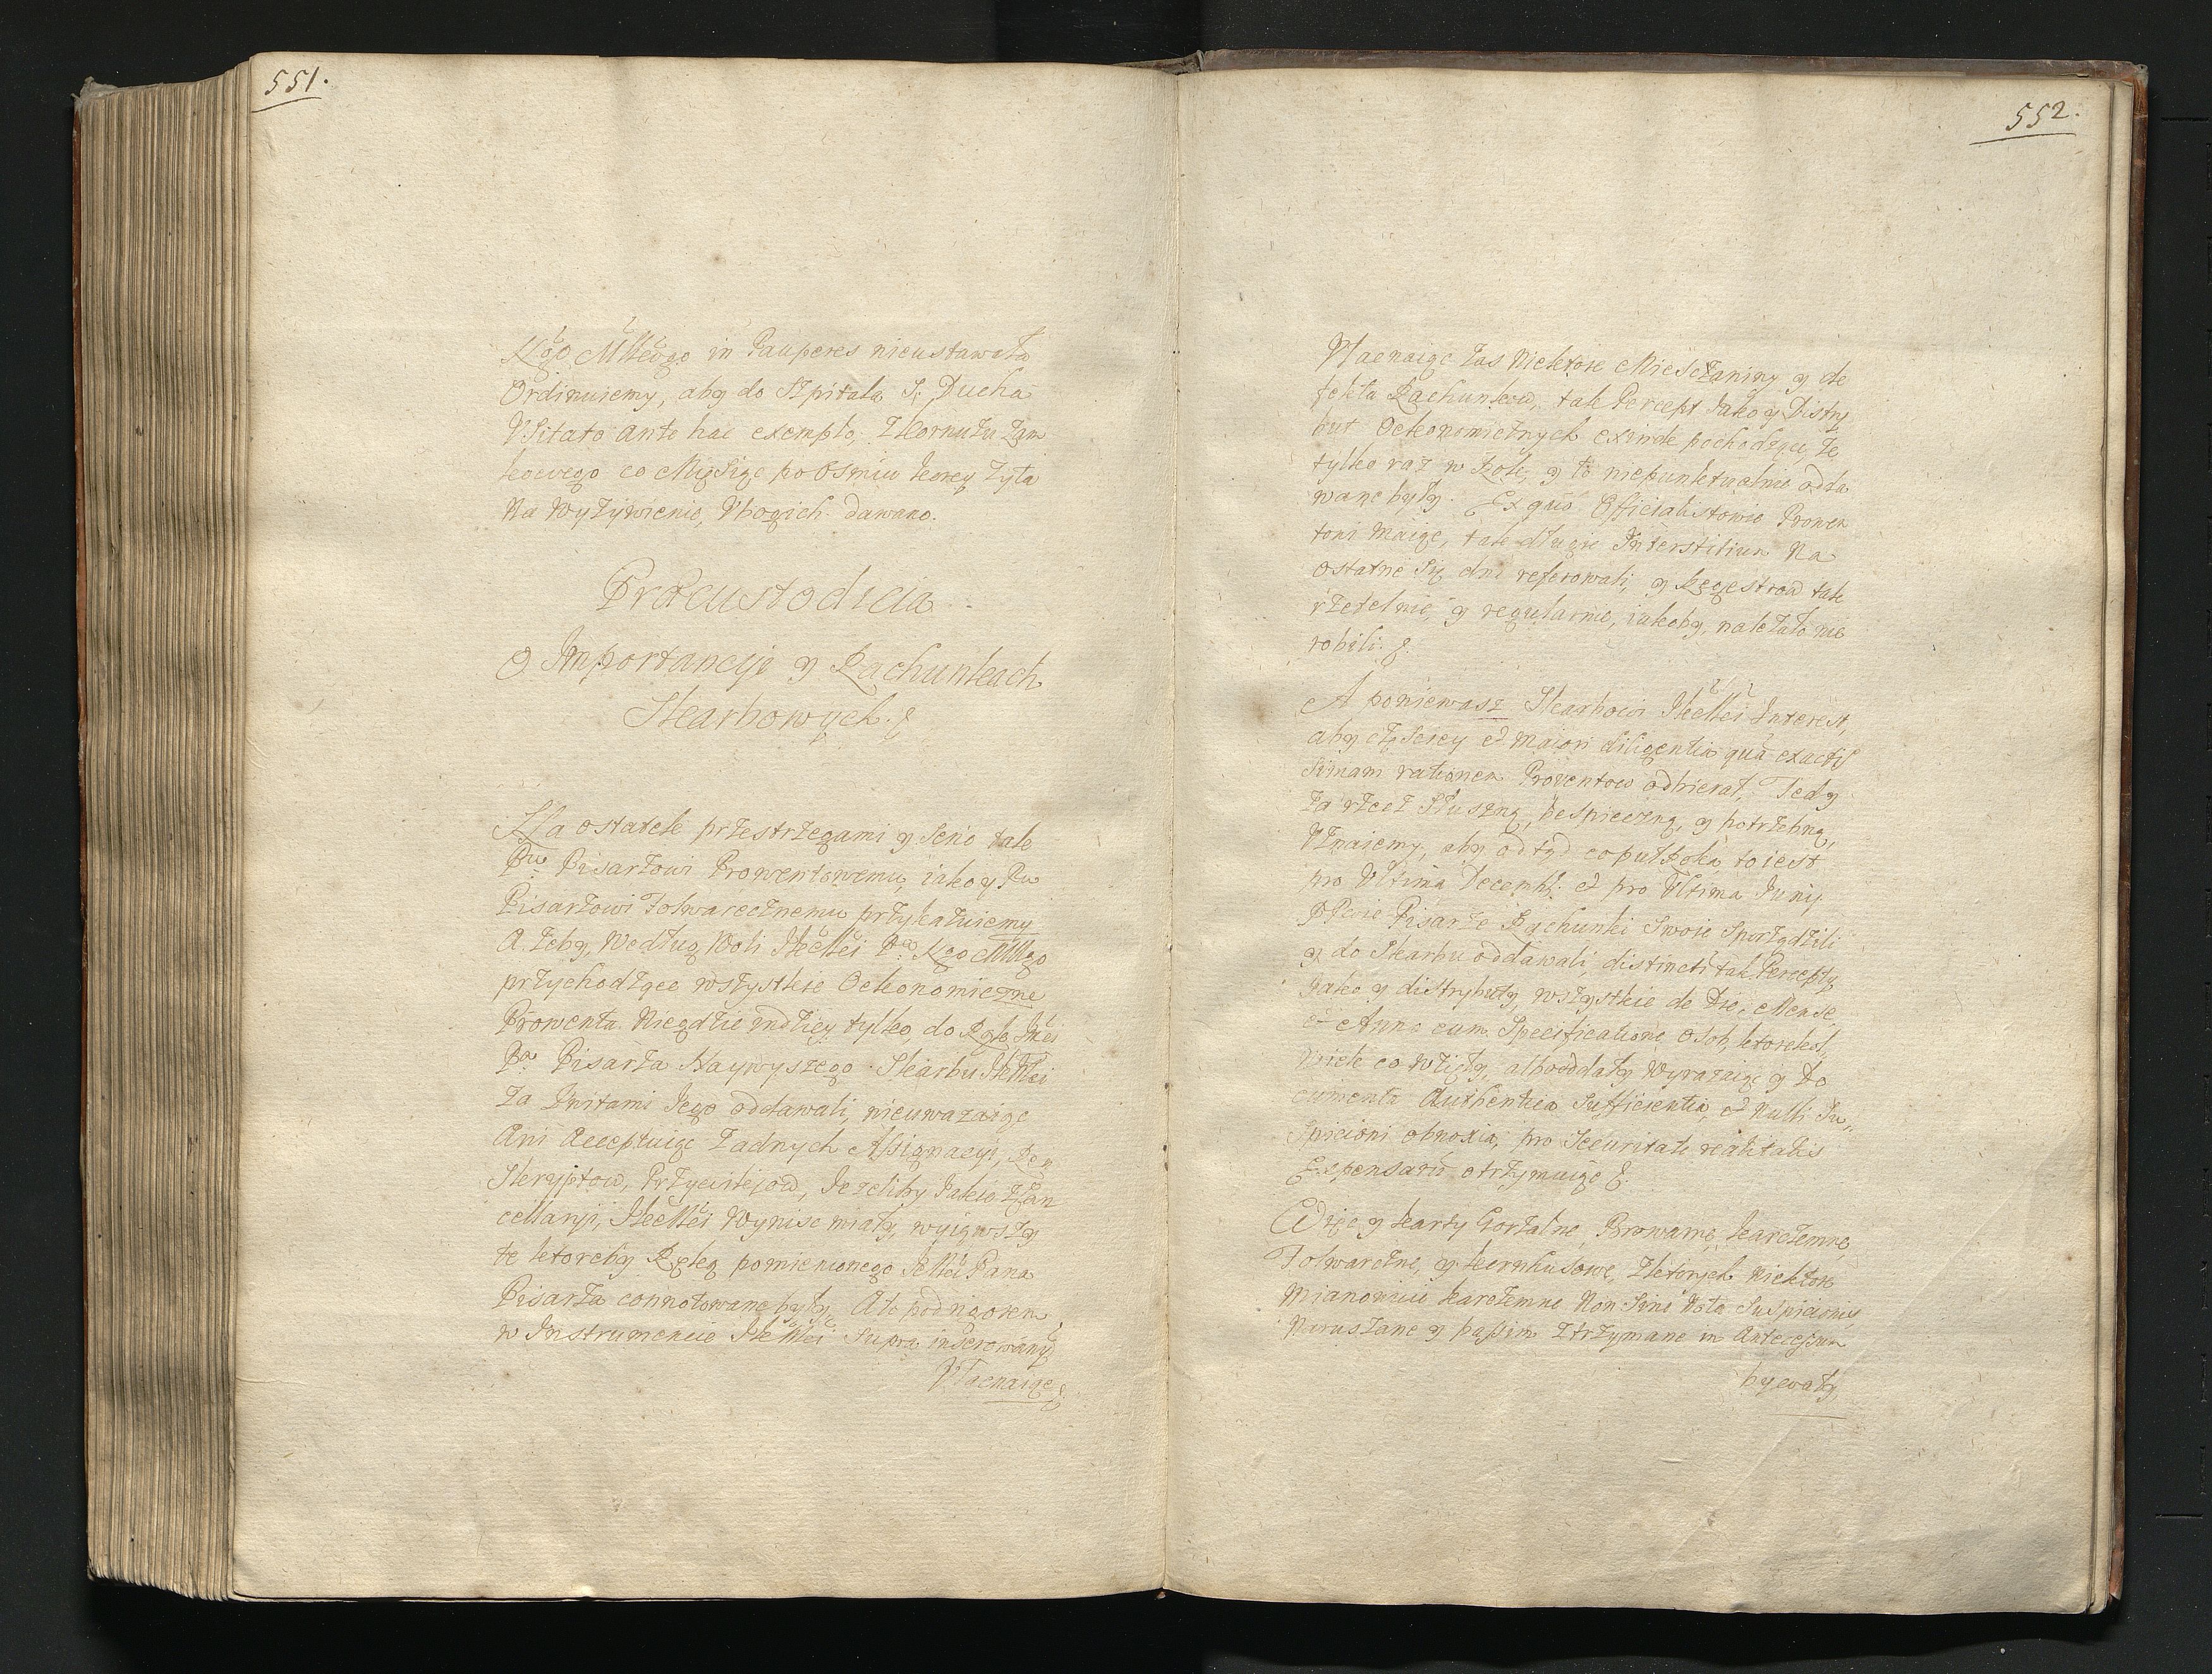 551.
Kgo Młłgo in Pauperes nieustawała
Ordinuiemy, aby do Szpitala S. Ducha
Usitato ante hac exemplo, z Kornuzu Zam
kowego co Mięsiąc po Osmiu korcy Zyta
Na Wyżywienie, Ubogich dawano.
Præcustodicia
O Importancyi y Rachunkach
Skarbowych. &
Na ostatek przestrzegami y serio tak
Pu Pisarzowi Prowentowemu, iako y Pu
Pisarzowi Folwarccznemu przykazuiemy
A żeby, Według Woli JKMci Pa Kgo Młłgo
przychodzące wszystkie Oekonomiczne
Prowenta Niegdzie indziey tylko, do Rąk JMci
Pa Pisarza Naywyszego Skarbu JKMci
Za Kwitami Jego oddawali, nieuwazaiąc
Ani Acceptuiąc Zadnych Assignacyi, Ren
Skryptow, Przywilejow, Jezeliby Jakie z Kan
cellaryi, JKMci Wynisc miały, wyiąwszy
te ktoreby Ręką pomienionego JMci Pana
Pisarza connotowane były, A to pod rigorem
w Instrumencie JKMci Supra inserowanym
Vłacnaiąc
552.
Vłacnaiąc Zas Niektore Miesczaniny y de
fekta Rachunkow, tak Percept Jako y Distry
but Oekonomicznych exinde pochodzące, że
tylko raz w Rok, y to niepunktualnie odda
wane były. Ex quo Officialistowie Prowen
towi Maiąc, tak długie Interstitium Na
Ostatne Się dni referowali, y Regestrow tak
rzetelnie, y regularnie, iakoby, nalezało nie
robili. &
A poniewasz Skarbowi JKMci Interest,
aby częsciey et maiori diligentia quã exactis
simam rationem Proventow odbierał, Tedy
Za rzecz Słuszną, bespieczną, y potrzebną,
Uznaiemy, aby od tąd co puł Roku, to iest
pro Ultima Decembr: et pro Ultima Juny
PPwie Pisarze Rachunki Swoie Sporządzili
y do Skarbu oddawali, distincti tak Percepty
Jako y distrybuty wszystkie de Die, Mense
et Anno cum Specificatione Osob, ktorekol
wiek co wzięły, albo oddały Wyrazaiąc y Do
cumenta Authentica Sufficientia, et Nulli Su,,
spicioni obnoxia, pro Securitate realitatis
Expensarũ otrzymuiąc &.
Więc y karty Gorzalne, Browarne, karczemne,
Folwarczne, y kornhusowe, z ktorych Niektore
Mianowicie karczemne Non Sine Nota Suspicionis
Naruszane y passim ztrzymane in Antecessum
bywały